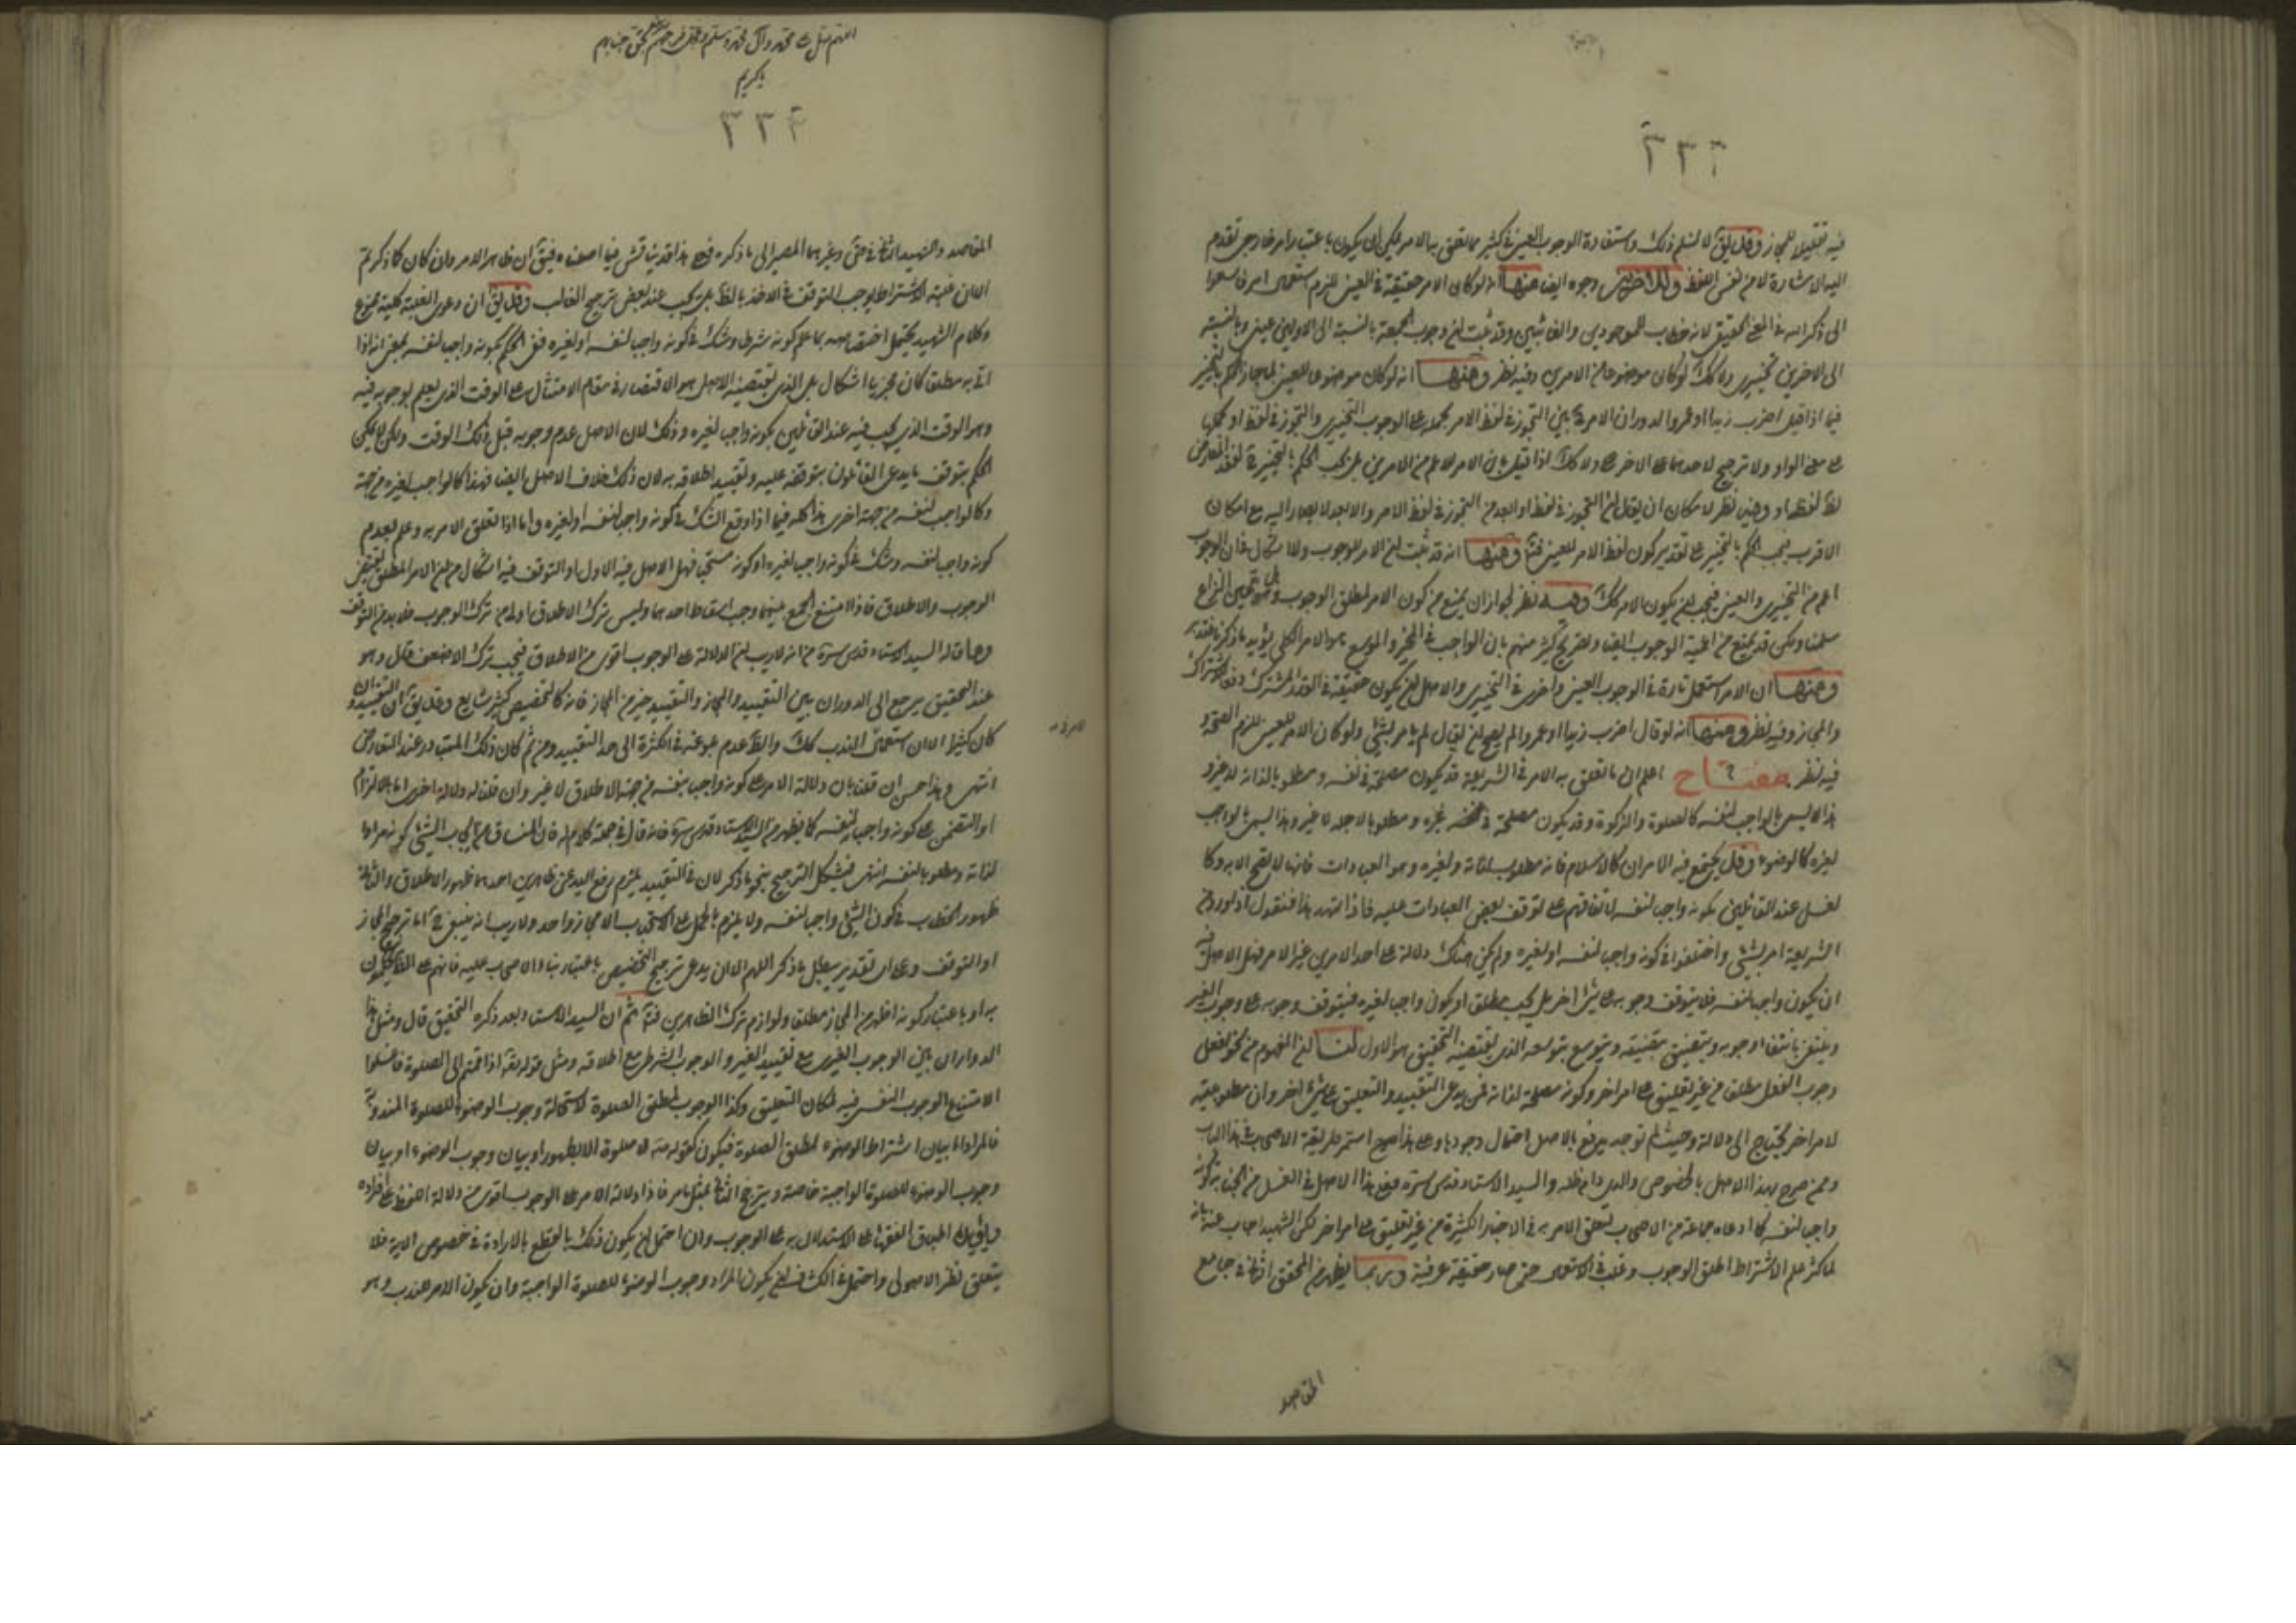 ٣٣٢
فيه تقليلا للمجاز وقد يق لا نسلم ذلك واستفادة الوجوب العيني في كثير مما تعلق به الامر يمكن ان يكون باعتبار امر خارجي تقدم
اليه الاشارة لا من نفس اللفظ وللاخرين وجوه ايضا منها انه لو كان الامر حقيقة في العيني للزم استعمال امر فاسعوا
الى ذكر الله في المعنى الحقيقي لانه خطاب للموجودين والغائبين وقد ثبت ان وجوب الجمعة بالنسبة الى الاولين عيني وبالنسبة
الى الاخرين تخييري ولا كك لو كان موضوعا للاعم من الامرين وفيه نظر ومنها انه لو كان موضوعا للعيني لما جاز الحكم بالتخيير
فيما اذا قيل اضرب زيدا او عمروا لدوران الامر ح بين التجوز في لفظ الامر بحمله على الوجوب التخييري والتجوز في لفظ او بحملها
على معنى الواو ولا ترجيح لاحدهما على الاخر ولا كك اذا قيل بان الامر للاعم من الامرين بل يجب الحكم بالتخيير ح لفقد المعارض
لظ لفظة او وفيه نظر لامكان ان يقال ان التجوز في لفظ او ابعد من التجوز في لفظ الامر والابعد لا يصار اليه مع امكان
الاقرب فيجب الحكم بالتخيير على تقدير كون لفظ الامر للعيني فتأ ومنها انه قد ثبت ان الامر للوجوب ولا اشكال فان الوجوب
اعم من التخييري والعيني فيجب ان يكون الامر كك وفيه نظر لجواز ان يمنع من كون الامر لمطلق الوجوب بل هو عين النزاع
سلمنا ولكن قد يمنع من اعمية الوجوب ايضا وتصريح كثير منهم بان الواجب في المخير والموسع هو الامر الكلي يؤيد ما ذكرنا فتدبر
ومنها ان الامر استعمل تارة في الوجوب العيني واخرى في التخييري والاصل ان يكون حقيقة في القدر المشترك دفعا للاشتراك
والمجاز وفيه نظر ومنها انه لو قال اضرب زيدا او عمروا لم يصح ان يقال لم يامر بشئ ولو كان الامر للعيني للزم الصحة و
فيه نظر مفتاح اعلم ان ما تعلق به الامر في الشريعة قد يكون مصلحة في نفسه ومطلوبا لذاته لا لغيره و
هذا لا ليس بالواجب لنفسه كالصلوة والزكوة وقد يكون مصلحة في غيره ومطلوبا لاجله لا غير وهذا ليس بالواجب
لغيره كالوضوء وقد يجتمع فيه الامران كالاسلام فانه مطلوب لذاته ولغيره وهو العبادات فانها لا تصح الا به وكا
لغسل عند القائلين بكونه واجبا لنفسه لاتفاقهم على توقف بعض العبادات عليه فاذا تمهد هذا فنقول اذا ورد في
الشريعة امر بشئ واختلفوا في كونه واجبا لنفسه او لغيره ولم يكن هناك دلالة على احد الامرين غير الامر فهل الاصل فيه
ان يكون واجبا لنفسه فلا يتوقف وجوبه على شئ اخر بل يجب مطلقا او يكون واجبا لغيره فيتوقف وجوبه على وجوب الغير
وينتفي بانتفاء وجوبه ويتضيق بتضيقه ويتوسع بتوسعه الذي يقتضيه التحقيق هو الاول لنا ان المفهوم من نحو افعل
وجوب الفعل مطلقا من غير تعليق على امر اخر وكونه مصلحة لذاته فمن يدعي التقييد والتعليق على شئ اخر وان مطلوبيته
لامر اخر يحتاج الى دلالة وحيث لم توجد يدفع بالاصل احتمال وجودها وعلى هذا استمر طريقة الاصحاب في هذا الباب
وممن صرح بهذا الاصل بالخصوص والدي دام ظله والسيد الاستاد قدس سره فعلى هذا الاصل في الغسل من الجنابة كونه
واجبا لنفسه كما ادعاه جماعة من الاصحاب لتعلق الامر به في الاخبار الكثيرة من غير تعليق على امر اخر لكن الشهيد اجاب عنه بانه
لما كثر علم الاشتراط اطلق الوجوب وغلب في الاستعمال حتى صار حقيقة عرفية وربما يظهر من المحقق الثاني في جامع
المقاصد
اللهم صل على محمد وآل محمد وسلم وعجل فرجهم بحق
يا كريم
٣٣٤
المقاصد والشهيد الثاني في وغيرهما المصير الى ما ذكره فعلى هذا قد يناقش فيما اصلناه فيق ان ظاهر الامر وان كان كما ذكرتم
الا ان غلبة الاشتراط يوجب التوقف في الاخذ بالظ بل يجب عند بعض ترجيح الغالب وقد يق ان دعوى الغلبة كلية ممنوع
وكلام الشهيد يحتمل اختصاصه بما علم كونه شرطا وشك في كونه واجبا لنفسه او لغيره ففي الحكم بكونه واجبا لنفسه بمعنى انه اذا
اتى به مطلقا كان مجزيا اشكال بل الذي يقتضيه الاصل هو الاقتصار في مقام الامتثال على الوقت الذي يعلم بوجوبه فيه
وهو الوقت الذي يجب فيه عند القائلين بكونه واجبا لغيره وذلك لان الاصل عدم وجوبه قبل ذلك الوقت ولكن لا يمكن
الحكم بتوقف ما يدعي القائلون بتوقفه عليه وتقييد اطلاقه به لان ذلك خلاف الاصل ايضا فهذا كالواجب لغيره من جهة
وكالواجب لنفسه من جهة اخرى هذا كله فيما اذا وقع الشك في كونه واجبا لنفسه او لغيره واما اذا تعلق الامر به وعلم بعدم
كونه واجبا لنفسه وشك في كونه واجبا لغيره او كونه مستحبا فهل الاصل فيه الاول او التوقف فيه اشكال من ان الامر المطلق يقتضي
الوجوب والاطلاق فاذا امتنع الجمع بينهما وجب اسقاط احدهما وليس ترك الاطلاق باولى من ترك الوجوب فلا بد من التوقف
وما قاله السيد الاستاد قدس سره من انه لا ريب ان الدلالة على الوجوب اقوى من الاطلاق فيجب ترك الاضعف قال وهو
عند التحقيق يرجع الى الدوران بين التقييد والمجاز والتقييد خير من المجاز فانه كالتخصيص كثير شايع وقد يق ان التقييد وان
كان كثيرا الا ان استعمال الندب كك والظ عدم بلوغه في الكثرة الى حد التقييد ومن ثم كان ذلك المتبادر عند التعارض
انتهى وهذا حسن ان قلنا بان دلالة الامر على كونه واجبا بنفسه من جهة الاطلاق لا غير وان قلنا له دلالة اخرى اما بالالتزام
او التضمن على كونه واجبا لنفسه كما يظهر من السيد الاستاد قدس سره فانه قال في جملة كلام له فان المنساق من ايجاب الشئ كونه مرادا
لذاته ومطلوبا لنفسه انتهى فيشكل الترجيح بنحو ما ذكر لان في التقييد يلزم رفع اليد عن ظاهرين احدهما ظهور الاطلاق والثاني
ظهور الخطاب في كون الشئ واجبا لنفسه ولا يلزم بالحمل على الاستحباب الا مجاز واحد ولا ريب انه ينبغي ح اما ترجيح المجاز
او التوقف وعلى اي تقدير يبطل ما ذكر اللهم الا ان يدعى ترجيح التخصيص باعتبار بناء الاصحاب عليه فانهم على الظ يحكمون
به او باعتبار كونه اظهر من المجاز مطلقا ولو لزم ترك الظاهرين فتأ ثم ان السيد الاستاد بعد ذكره التحقيق قال ومثل هذا
الدوران بين الوجوب الغيري مع تقييد الغير والوجوب الشرطي مع اطلاقه ومثل قوله تعالى اذا قمتم الى الصلوة فاغسلوا
لامتناع الوجوب النفسي فيه لمكان التعليق وكذا الوجوب لمطلق الصلوة لاستحالة وجوب الوضوء للصلوة المندوبة
فالمراد اما بيان اشتراط الوضوء لمطلق الصلوة فيكون كقوله لا صلوة الا بطهور او بيان وجوب الوضوء او بيان
وجوب الوضوء للصلوة الواجبة خاصة ويترجح الثاني بمثل ما مر فاذا دلالة الامر على الوجوب اقوى من دلالة اللفظ على افراده
اطباق الفقهاء على الاستدلال به على الوجوب وان احتمل ان يكون ذلك بالقطع بالارادة في خصوص الاية فلا
يتعلق نظر الاصولي واحتمل في الكشاف ان يكون المراد وجوب الوضوء للصلوة الواجبة وان يكون الامر للندب وهو